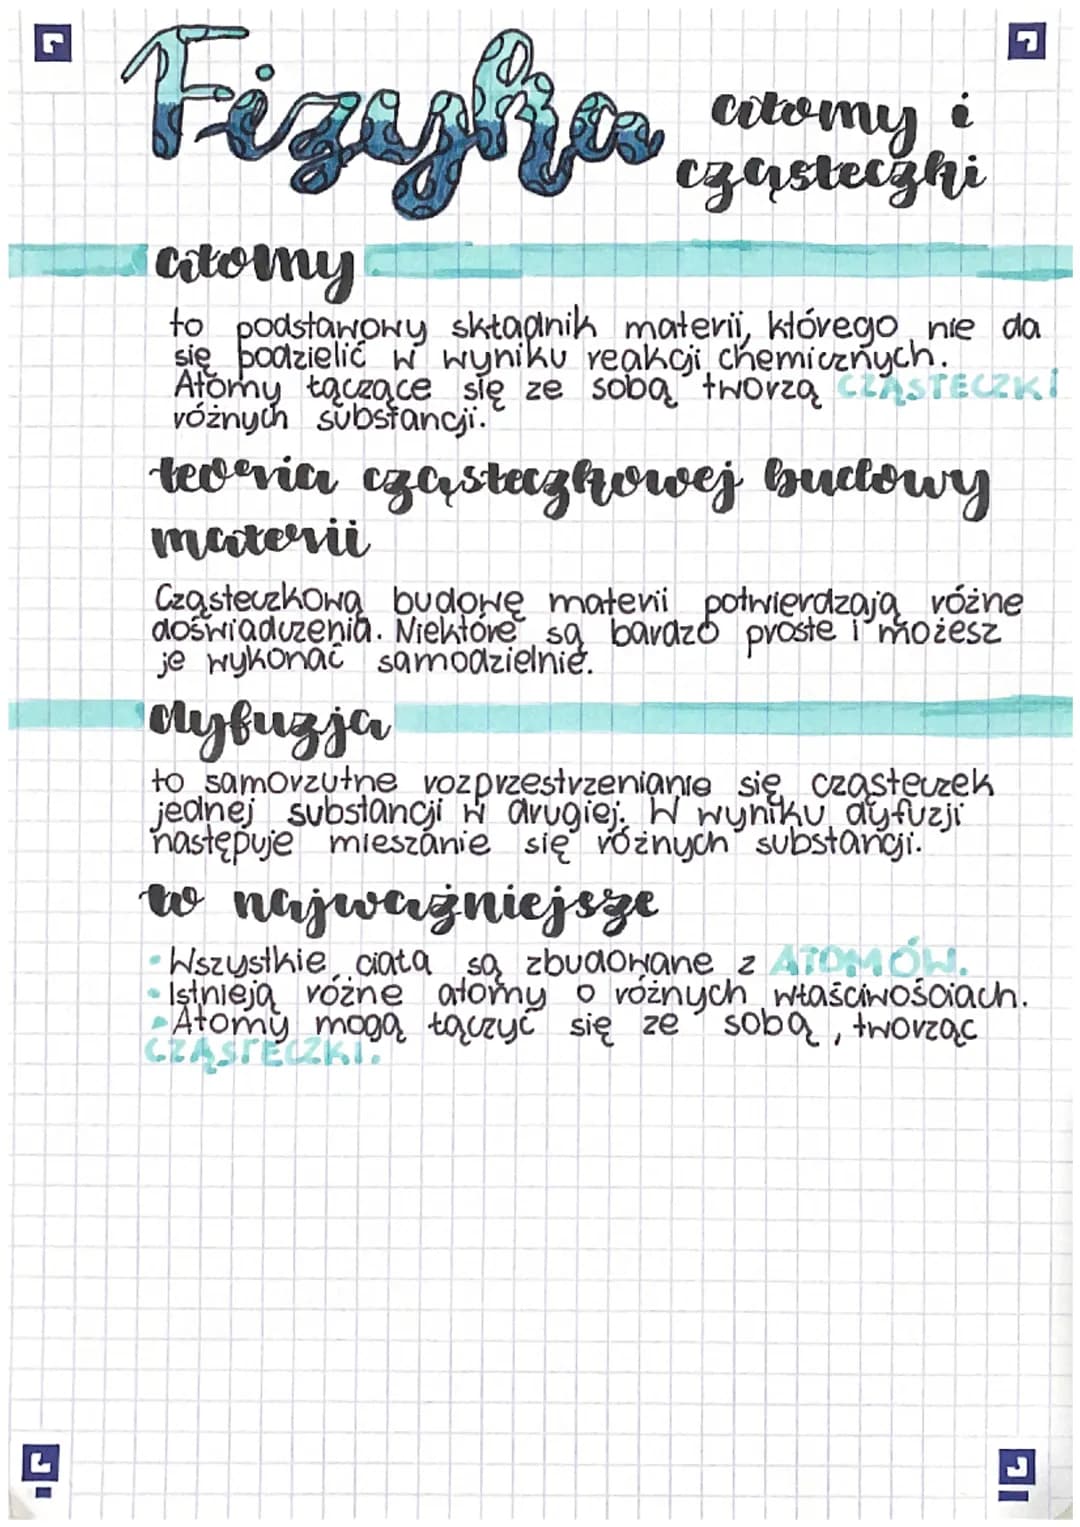 Fizyka
atomy i
cząsteczki
atomy
to podstawowy składnik materii, którego nie da
się podzielić w wyniku reakcji chemicznych.
Atomy łączące się ze sobą tworzą CZĄSTECZKI
różnych substancji.
teoria cząsteczkowej budowy
materii
Cząsteczkową budowę materii potwierdzają różne
doświadczenia. Niektóre są bardzo proste i możesz
je wykonać samodzielnie.
dyfuzja
to samorzutne rozprzestrzenianie się cząsteczek
jednej substancji w drugiej. W wyniku dyfuzji
następuje mieszanie się różnych substancji.
to najważniejsze
• Wszystkie ciała są zbudowane z ATOMÓW.
• Istnieją różne atomy o różnych właściwościach.
• Atomy mogą łączyć się ze sobą, tworząc
CZĄSTECZKI.